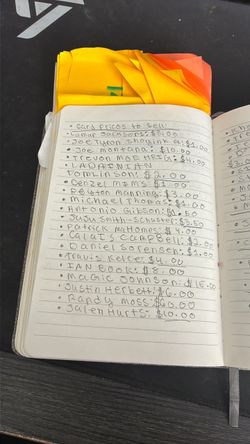 • Card prices to sell:
• Lamar Jackson: $5.00
• Joe Tyron Shoyinka: $1.00
• Joe montana: $10.00
• Trevon Moehrig: $4.00
• LADAINIAN
TOMLINSON: $2.00
• Denzel Mims: $1.00
• PEyton Manning: $3.00
• Michael Thomas: $1.00
• Antonio Gibson: $1.50
• JuJu Smith-Schuster: $2.50
• Patrick mahomes: $4.00
• Calais Campbell: $2.00
• Daniel Sorensen: $1.00
• Travis Kelce: $4.00
• IAN Book: $8.00
• Magic Johnson: $15.00
• Justin Herbert: $6.00
• Randy moss: $60.00
• Jalen Hurts: $10.00